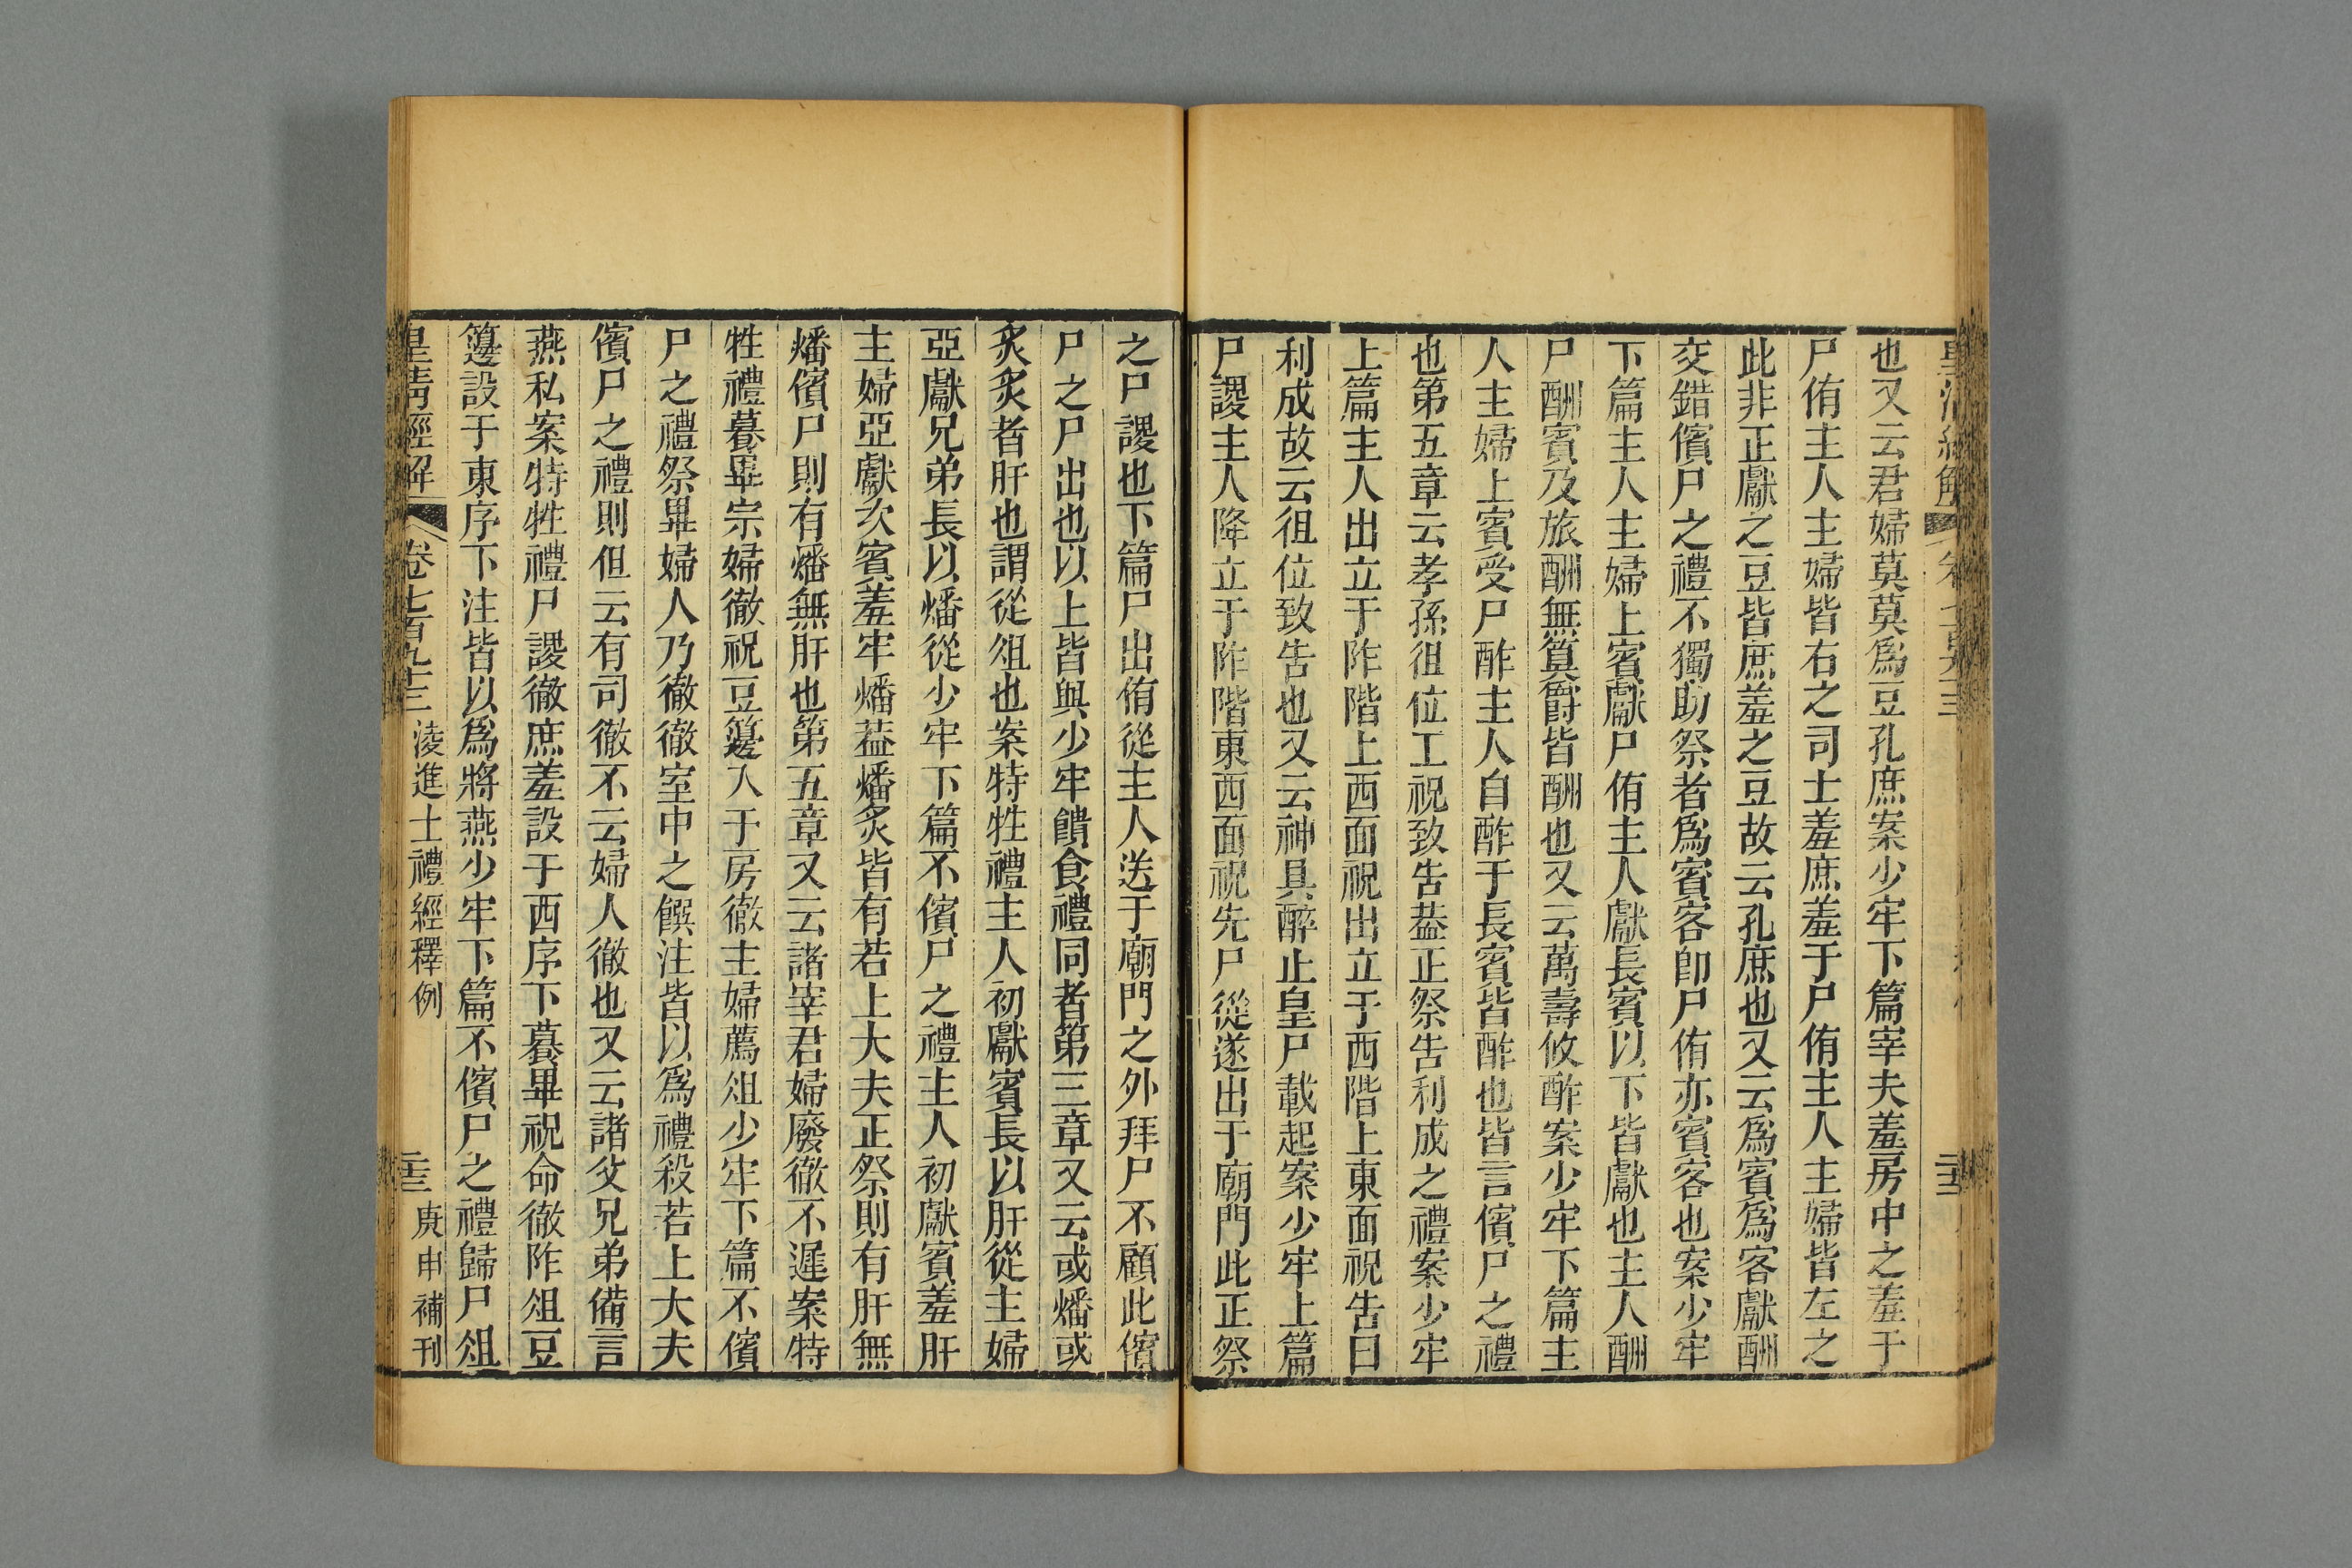 也又云君婦莫莫爲豆孔庶案少牢下篇宰夫羞房中之羞于
尸侑主人主婦皆右之司士羞庶羞于尸侑主人主婦皆左之
此非正獻之豆皆庶羞之豆故云孔庶也又云爲賓爲客獻酬
交錯儐尸之禮不獨助祭者爲賓客卽尸侑亦賓客也案少牢
下篇主人主婦上賓獻尸侑主人獻長賓以下皆獻也主人酬
尸酬賓及旅酬無筭爵皆酬也又云萬壽攸酢案少牢下篇主
人主婦上賓受尸酢主人自酢于長賓皆酢也皆言儐尸之禮
也第五章云孝孫徂位工祝致告葢正祭告利成之禮案少牢
上篇主人出立于阼階上西面祝出立于西階上東面祝告曰
利成故云徂位致告也又云神具醉止皇尸載起案少牢上篇
尸謖主人降立于阼階東西面祝先尸從遂出于廟門此正祭
之尸謖也下篇尸出侑從主人送于廟門之外拜尸不顧此儐
尸之尸出也以上皆與少牢饋食禮同者第三章又云或燔或
炙炙者肝也謂從俎也案特牲禮主人初獻賓長以肝從主婦
亞獻兄弟長以燔從少牢下篇不儐尸之禮主人初獻賓羞肝
主婦亞獻次賓羞牢燔葢燔炙皆有若上大夫正祭則有肝無
燔儐尸則有燔無肝也第五章又云諸宰君婦廢徹不遲案特
牲禮餕畢宗婦徹祝豆籩入于房徹主婦薦俎少牢下篇不儐
尸之禮祭畢婦人乃徹徹室中之饌注皆以爲禮殺若上大夫
儐尸之禮則但云有司徹不云婦人徹也又云諸父兄弟備言
燕私案特牲禮尸謖徹庶羞設于西序下餕畢祝命徹阼俎豆
籩設于東序下注皆以爲將燕少牢下篇不儐尸之禮歸尸俎
皇清經解 卷七百九十三 淩進士禮經釋例 三十三 庚申補刊